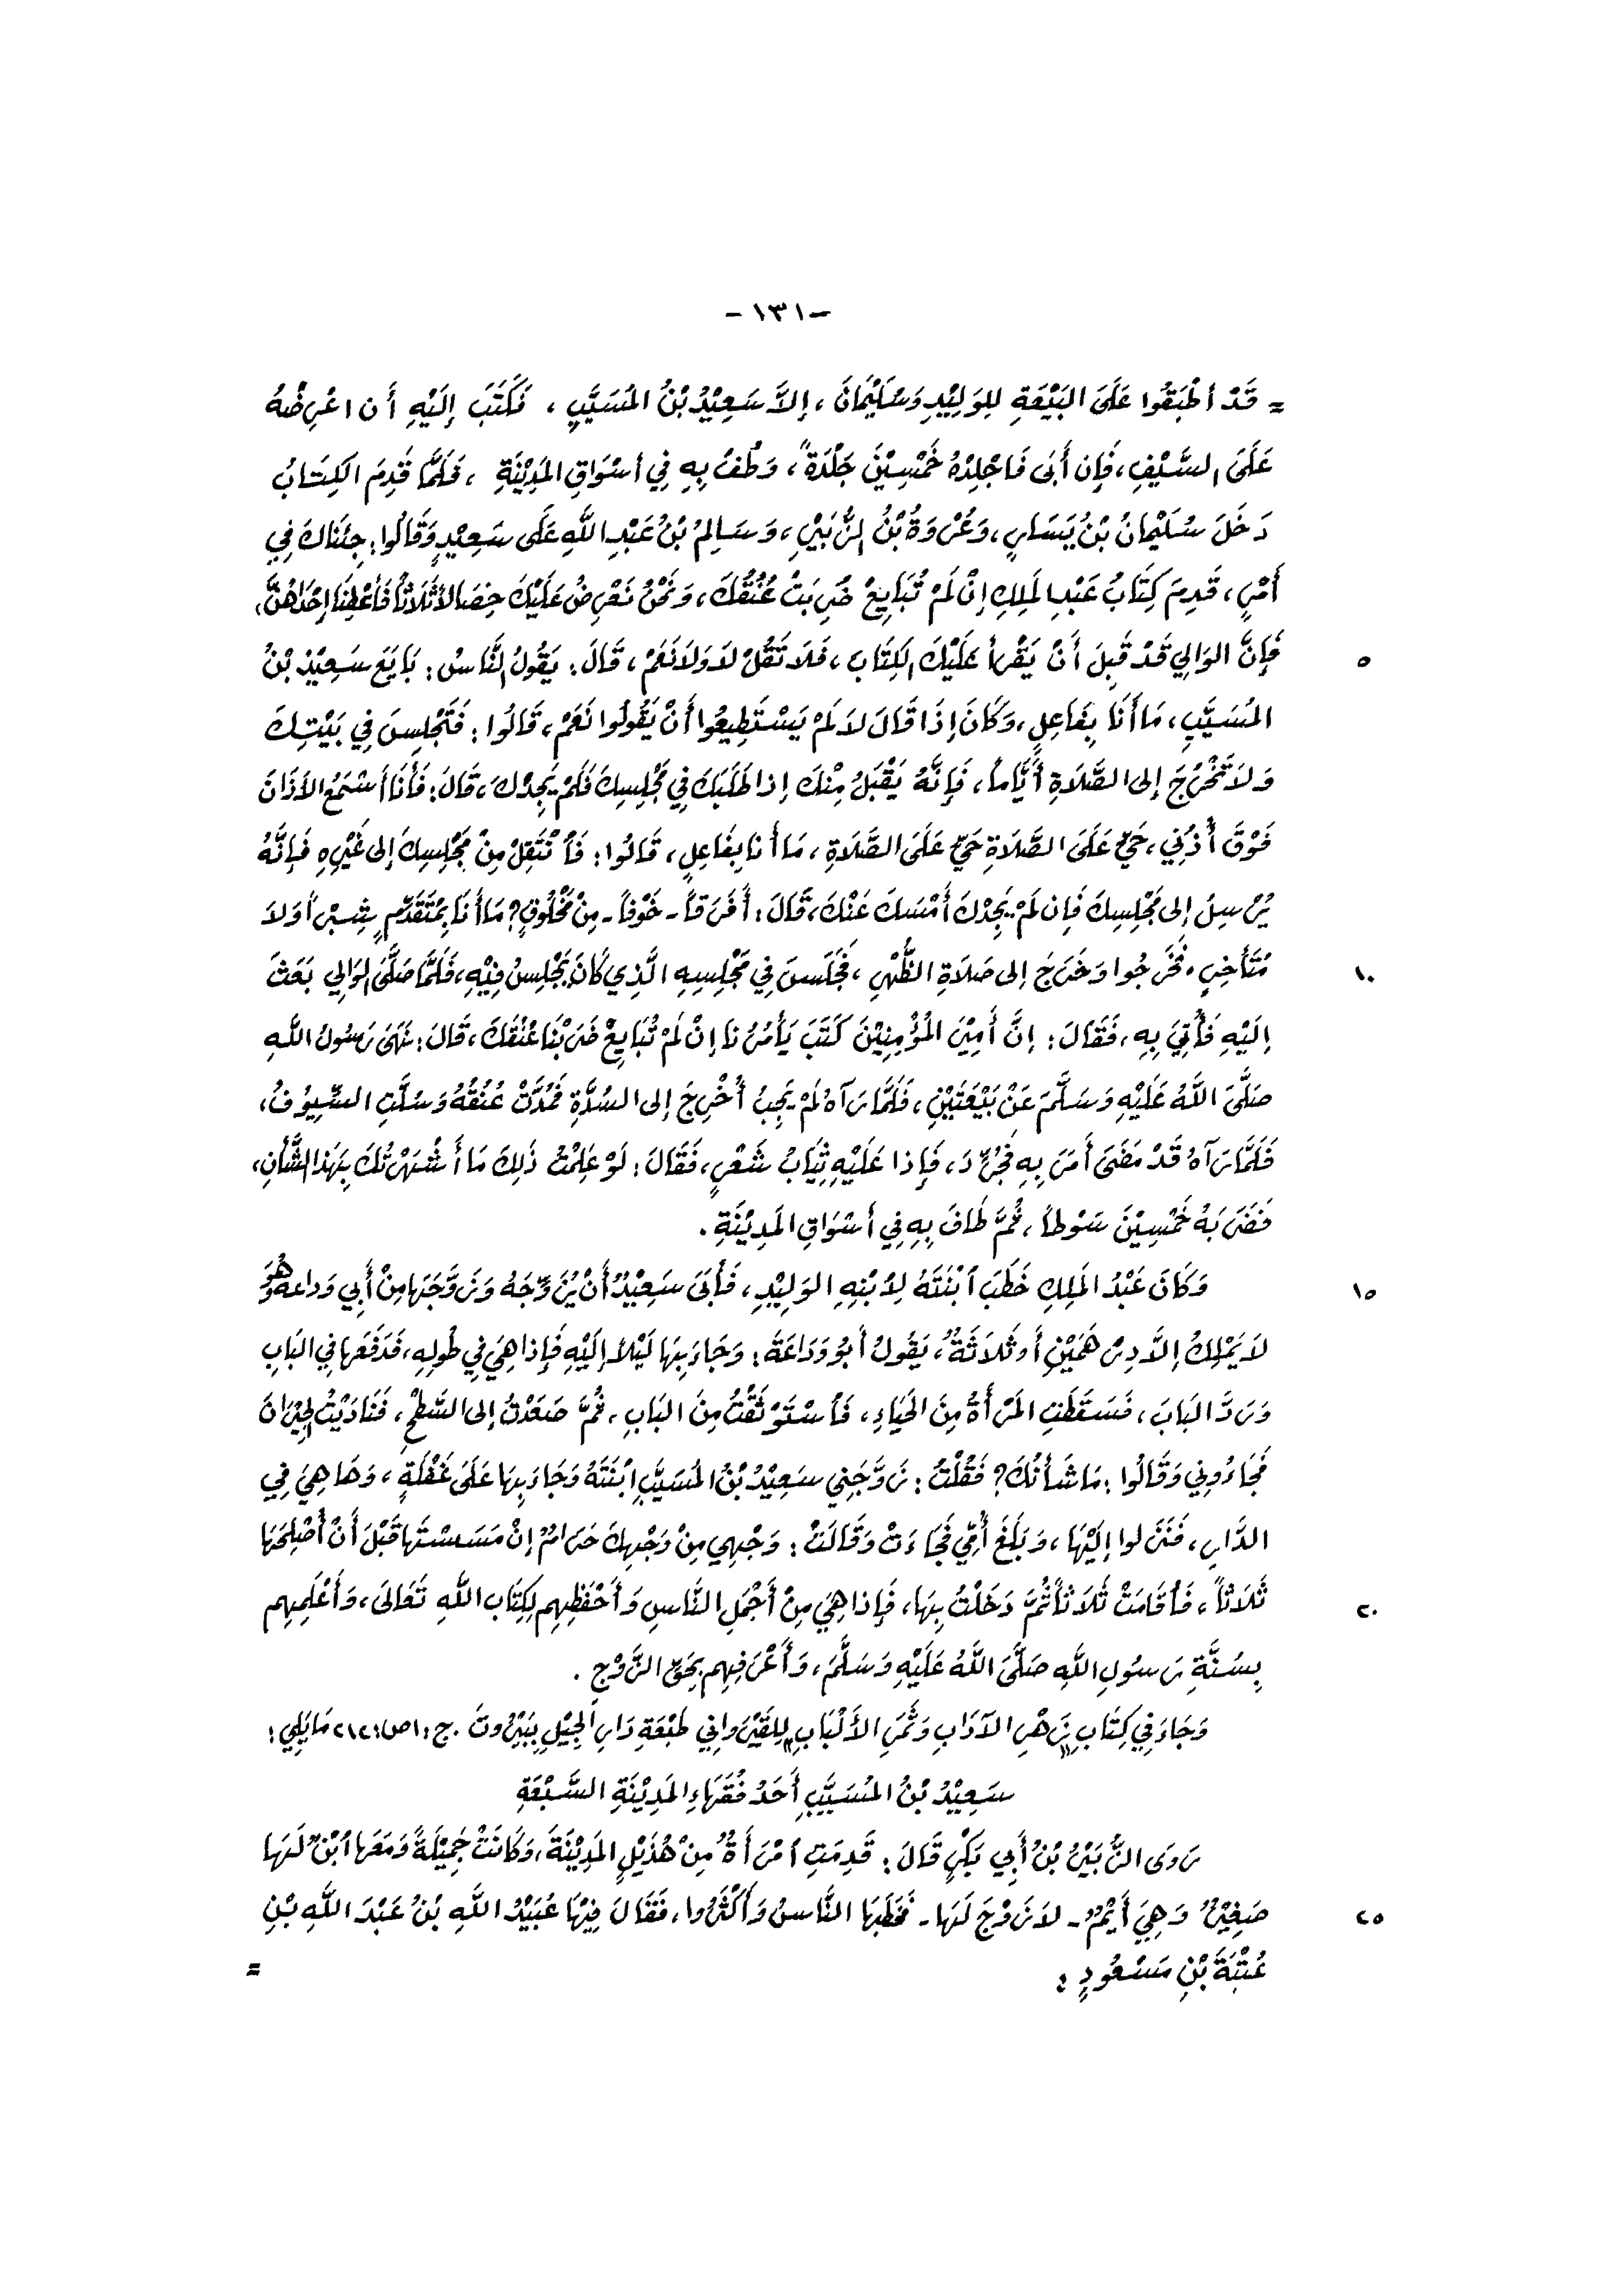 -١٣١-
= قَدْ أطْبَقُوا عَلَى البَيْعَةِ لِلوَلِيْدِ وَسُلَيْمَانَ، إلاَّ سَعِيْدُ بْنُ المُسَيَّبِ، فَكَتَبَ إلَيْهِ أن اعْرِضْهُ
عَلَى السَّيْفِ، فَإن أَبَى فَاجْلِدْهُ خَمْسِيْنَ جَلْدَةً، وَطُفْ بِهِ فِي أسْوَاقِ المَدِيْنَةِ، فَلَمَّا قَدِمَ الكِتَابُ
دَخَلَ سُلَيْمَانُ بْنُ يَسَارٍ، وَعُرْوَةُ بْنُ الزُّبَيْرِ، وَسَالِمُ بْنُ عَبْدِ اللَّهِ عَلَى سَعِيْدٍ وَقَالُوا: جِئْنَاكَ فِي
أَمْرٍ، قَدِمَ كِتَابُ عَبْدِ المَلِكِ إنْ لَمْ تُبَايِعْ ضُرِبَتْ عُنُقُكَ، وَنَحْنُ نَعْرِضُ عَلَيْكَ خِصَالاً ثَلَاثاً فَأَعْطِنَا إحْدَاهُنَّ،
فَإنَّ الوَالِي قَدْ قَبِلَ أَنْ يَقْرأ عَلَيْكَ الكِتَابَ، فَلَا تَقُلْ لاَ وَلاَ نَعَمْ، قَالَ: يَقُولُ النَّاسُ: بَايَعَ سَعِيْدُ بْنُ
٥
المُسَيَّبِ، مَا أَنَا بِفَاعِلٍ، وَكَانَ إذَا قَالَ لاَ لَمْ يَسْتَطِيعُوا أَنْ يَقُولُوا نَعَمْ، قَالُوا: فَتَجْلِسَ فِي بَيْتِكَ
وَلاَ تَخْرُجَ إلى الصَّلَاةِ أَيَّاماً، فَإنَّهُ يَقْبَلُ مِنْكَ إذا طَلَبَكَ فِي مَجْلِسِكَ فَلَمْ يَجِدْكَ، قَالَ: فَأَنَا أَسْمَعُ الأذَانَ
فَوْقَ أُذُنِي، حَيَّ عَلَى الصَّلَاةِ حَيَّ عَلَى الصَّلَاةِ، مَا أنا بِفَاعِلٍ، قَالُوا: فَأنْتَقِلْ مِنْ مَجْلِسِكَ إلى غَيْرِهِ فَإنَّهُ
يُرْسِلُ إلى مَجْلِسِكَ فَإن لَمْ يَجِدْكَ أَمْسَكَ عَنْكَ، قَالَ: أَفَرَقاً - خَوْفاً - مِنْ مَخْلُوقٍ؟ مَا أَنَا بِمُتَقَدِّمٍ شِبْراً وَلاَ
مُتَأَخِّرٍ، فَخَرَجُوا وَخَرَجَ إلى صَلَاةِ الظُّهْرِ، فَجَلَسَ فِي مَجْلِسِهِ الَّذِي كَانَ يَجْلِسُ فِيْهِ، فَلَمَّا صَلَّى الوَالِي بَعَثَ
١٠
إلَيْهِ فَأُتِيَ بِهِ، فَقَالَ: إنَّ أَمِيْرَ المُؤْمِنِيْنَ كَتَبَ يَأْمُرُنَا إنْ لَمْ تُبَايِعْ ضَرَبْنَا عُنُقَكَ، قَالَ: نَهَى رَسُولُ اللَّهِ
صَلَّى اللَّهُ عَلَيْهِ وَسَلَّمَ عَنْ بَيْعَتَيْنِ، فَلَمَّا رَآهُ لَمْ يَجِبْ أُخْرِجَ إلى السُّدَّةِ فَمُدَّتْ عُنُقُهُ وَسُلَّتِ السُّيوُفُ،
فَلَمَّا رَآهُ قَدْ مَضَى أَمَرَ بِهِ فَجُرِّدَ، فَإذا عَلَيْهِ ثِيَابُ شَعْرٍ، فَقَالَ: لَوْ عَلِمْتُ ذَلِكَ مَا أَشْهَرْتُكَ بِهَذا الشَّأنِ،
فَضَرَبَهُ خَمْسِيْنَ سَوْطاً، ثُمَّ طَافَ بِهِ فِي أَسْوَاقِ المَدِيْنَةِ.
وَكَانَ عَبْدُ المَلِكِ خَطَبَ ٱبْنَتَهُ لِٱبْنِهِ الوَلِيْدِ، فَأَبَى سَعِيْدٌ أَنْ يُزَوِّجَهُ وَزَوَّجَهَا مِنْ أَبِي وَداعة وَهُوَ
١٥
لاَ يَمْلِكُ إلاَّ دِرْهَمَيْنِ أَو ثَلاَثَةٌ، يَقُولُ أَبُو وَدَاعَةَ: وَجَاءَ بِهَا لَيْلاً إلَيْهِ فَإذا هِيَ فِي طُولِهِ، فَدَفَعَها فِي البَابِ
وَرَدَّ البَابَ، فَسَقَطَتِ المَرْأَةُ مِنَ الحَيَاءِ، فَٱسْتَوْثَقْتُ مِنَ البَابِ، ثُمَّ صَعَدْتُ إلى السَّطْحِ، فَنَادَيْتُ الجِيْرَانَ
فَجَاءُونِي وَقَالُوا: مَا شَأنُكَ؟ فَقُلْتُ: زَوَّجَنِي سَعِيْدُ بْنُ المُسَيَّبِ ٱبْنَتَهُ وَجَاءَ بِهَا عَلَى غَفْلَةٍ، وَهَا هِيَ فِي
الدَّارِ، فَنَزَلوا إلَيْهَا، وَبَلَغَ أُمِّي فَجَاءَتْ وَقَالَتْ: وَجْهِي مِنْ وَجْهِكَ حَرَامٌ إنْ مَسَسْتَها قَبْلَ أَنْ أُصْلِحَهَا
ثَلَاثاً، فَأقَامَتْ ثَلَاثاً ثُمَّ دَخَلْتُ بِهَا، فَإذا هِيَ مِنْ أَجْمَلِ النَّاسِ وَأَحْفَظِهِم لِكِتَابِ اللَّهِ تَعَالَى، وَأَعْلَمِهِم
٢٠
بِسُنَّةِ رَسُولِ اللَّهِ صَلَّى اللَّهُ عَلَيْهِ وَسَلَّمَ، وَأَعْرَفِهِم بِحَقِّ الزَّوْجِ.
وَجَاءَ فِي كِتَابِ "زَهْرِ الآدَابِ وَثَمَرِ الأَلْبَابِ" لِلقَيْرَوانِي طَبْعَةِ دَارِ الجِيْلِ بِبَيْرُوتَ. ج: ١ ص: ٢١٢ مَا يَلِي:
سَعِيْدُ بْنُ المُسَيَّبِ أَحَدُ فُقَهَاءِ المَدِيْنَةِ السَّبْعَةِ
رَوَى الزُّبَيْرُ بْنُ أَبِي بَكْرٍ قَالَ: قَدِمَتِ ٱمْرَأَةٌ مِنْ هُذَيْلٍ المَدِيْنَةَ، وَكَانَتْ جَمِيْلَةً وَمَعَها ٱبْنٌ لَهَا
صَغِيْرٌ وَهِيَ أَيِّمٌ - لاَ زَوْجَ لَهَا - فَخَطَبَهَا النَّاسُ وَأَكْثَرُوا، فَقَالَ فِيْهَا عُبَيْدُ اللَّهِ بْنُ عَبْدَ اللَّهِ بْنِ
٢٥
عُتْبَةَ بْنِ مَسْعُودٍ:
=